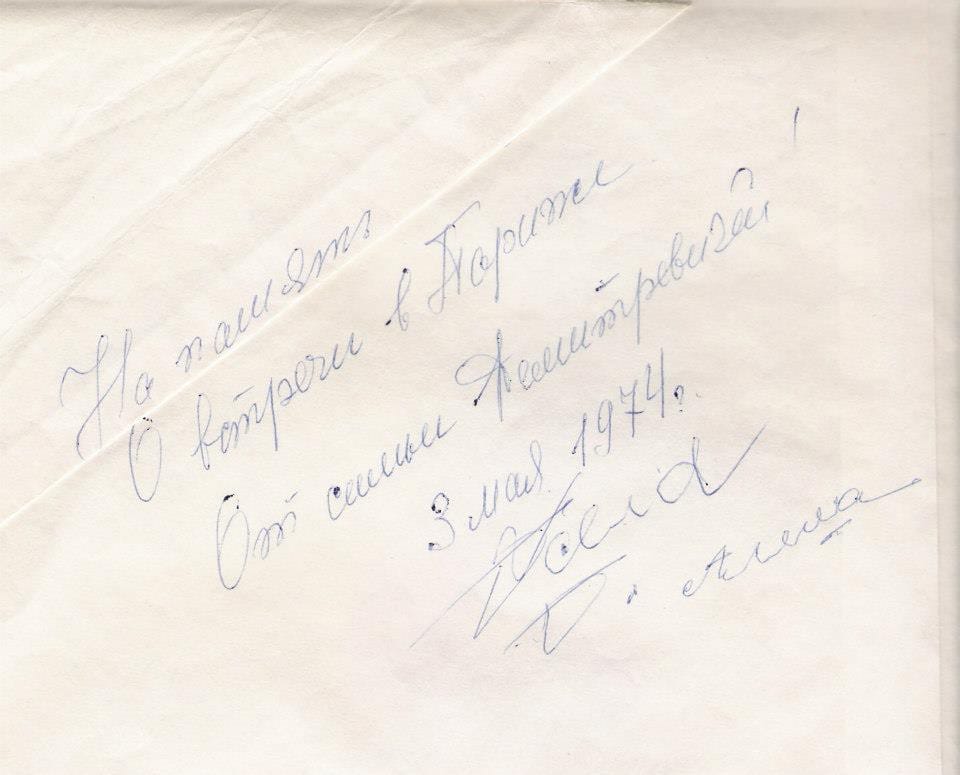 На память
О встречи в Париже
От семьи Димитревичей!
3 мая 1974 г.
Валя